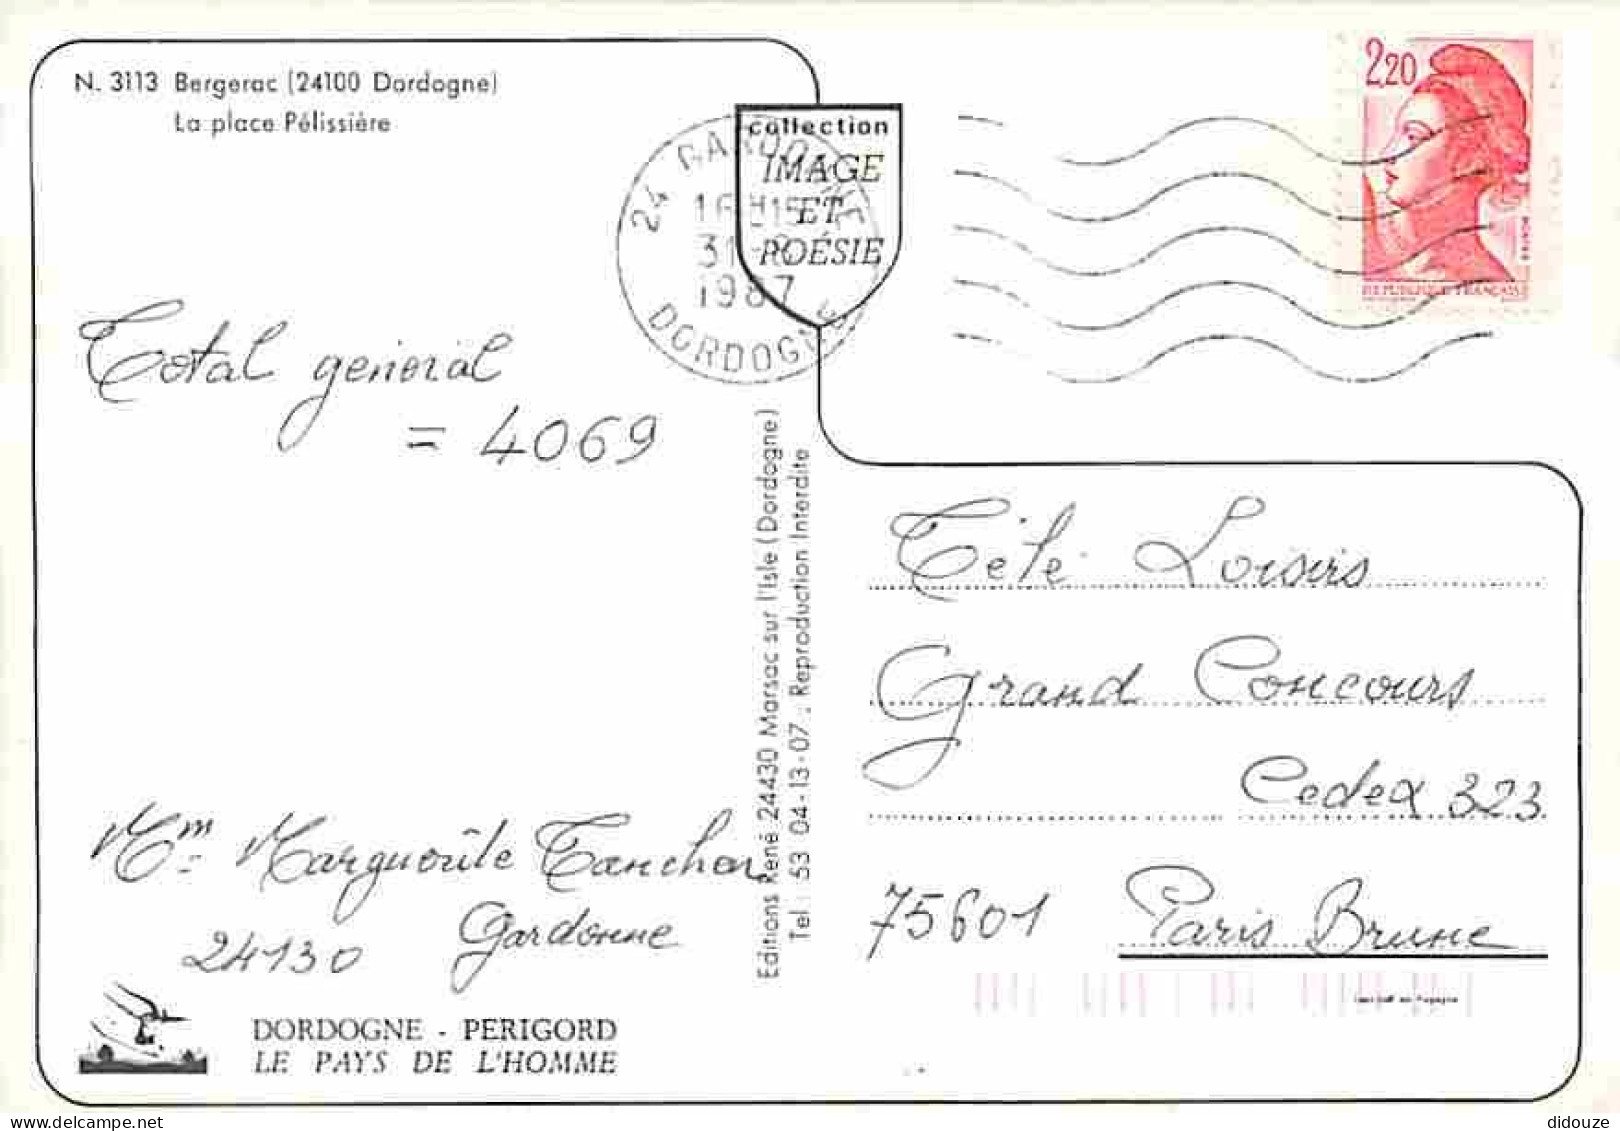 N. 3113 Bergerac (24100 Dordogne)
La place Pélissière
collection
IMAGE
ET
POÉSIE
24 GARDONNE
16H15
31-8
1987
DORDOGNE
2,20
REPUBLIQUE FRANÇAISE
Total général
= 4069
Editions René 24430 Marsac sur l'Isle (Dordogne)
Tel : 53 04-13-07 , Reproduction Interdite
Télé Loisirs
Grand Concours
Cedex 323
75601 Paris Brune
Mm Marguerite Tanchon
24130 Gardonne
DORDOGNE - PERIGORD
LE PAYS DE L'HOMME
delcampe.net
didouze